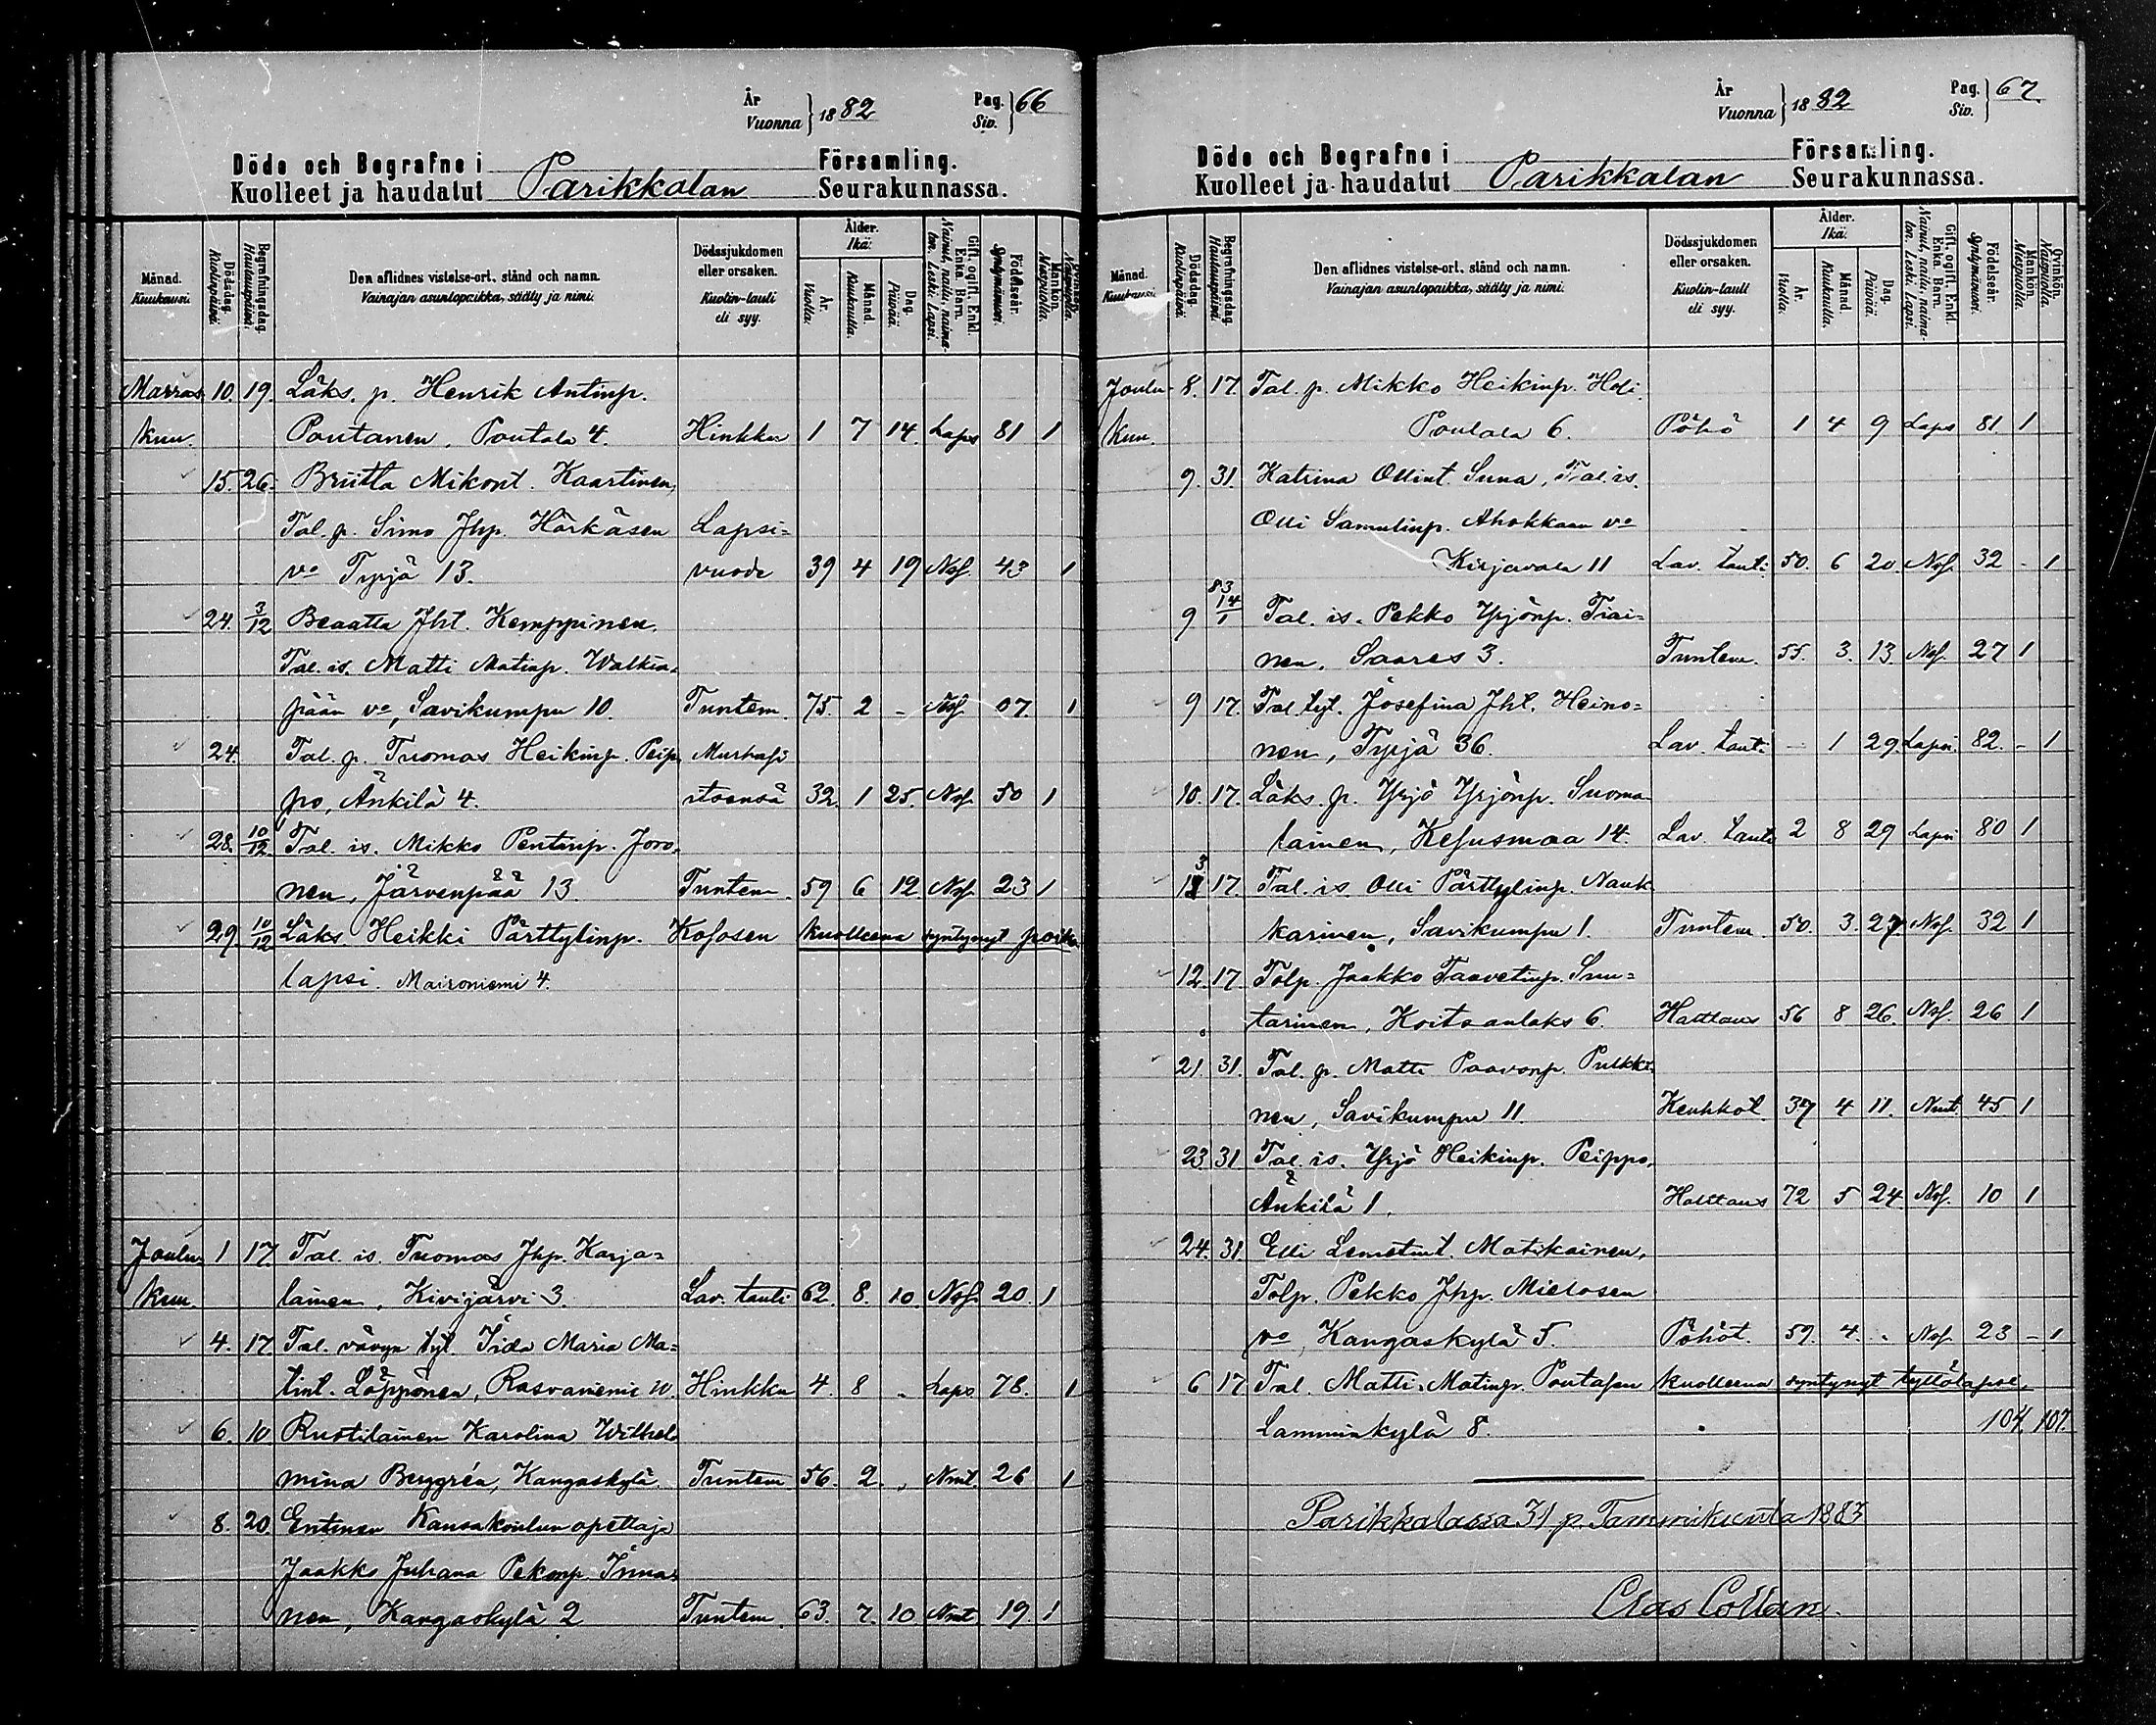 År
Vuonna } 1882
Pag.
Siv. } 66
Döde och Begrafne i
Kuolleet ja haudatut Parikkalan
Församling.
Seurakunnassa.
Månad.
Kuukausi.
Dödsdag.
Kuolinpäivä.
Begrafningsdag.
Hautauspäivä.
Den aflidnes vistelse-ort, stånd och namn.
Vainajan asuntopaikka, sääty ja nimi.
Dödssjukdomen
eller orsaken.
Kuolin-tauti
eli syy.
Ålder.
Ikä.
År.
Vuotta.
Månad.
Kuukautta.
Dag.
Päivää.
Gift, ogift. Enkl.
Enka. Barn.
Nainut, naitu, naima-
ton. Leski. Lapsi.
Födelseår.
Syntymävuosi.
Mankön.
Miespuolia.
Marras 10. 19. Läks. p. Henrik Antinp.
kuu. Poutanen, Poutala 4. Hinkku 1 7 14. Laps 81 1
15. 26. Briitta Mikont. Kaartinen,
Tal. p. Simo Jhp. Härkäsen Lapsi=
vo Tyrjä 13. vuode 39 4 19 Nof. 43 1
24. 3/12 Beaatta Jht. Kemppinen.
Tal. is. Matti Matinp. Walkia-
pään vo, Savikumpu 10. Tuntem. 75. 2 - Nof. 07. 1
24. Tal. p. Tuomas Heikinp. Peip
po, Änkilä 4. itsensä 32. 1 25. Nof. 50 1
28. 10/12 Tal. is. Mikko Pentinp. Joro-
nen, Järvenpää 13. Tuntem. 59 6 12. Nof. 23 1
29 10/12 Läks Heikki Pärttylinp. Kososen kuolleena syntynyt poika
lapsi. Maironiemi 4.
Joulu- 1 17. Tal. is. Tuomas Jhp. Karja=
kuu. lainen, Kivijärvi 3. Lav. tauti 62. 8. 10. Nof. 20. 1
4. 17. Tal. vävyn tyt. Iida Maria Ma=
tint. Löppönen, Rasvaniemi 10. Hinkku 4. 8 „ Laps 78. 1
6. 10 Ruotilainen Karolina Wilhel
mina Berggrén, Kangaskylä Tuntem 56. 2. „ Nmt. 26 1
8. 20. Entinen Kansakoulun opettaja
Jaakko Juhana Pekonp. Inna-
nen, Kangaskylä 2 Tuntem. 63. 7. 10. Nmt. 19 1
År
Vuonna } 1882
Pag.
Siv. } 67.
Döde och Begrafne i
Kuolleet ja haudatut Parikkalan
Församling.
Seurakunnassa.
Månad.
Kuukausi.
Dödsdag.
Kuolinpäivä.
Begrafningsdag.
Hautauspäivä.
Den aflidnes vistelse-ort, stånd och namn.
Vainajan asuntopaikka, sääty ja nimi.
Dödssjukdomen
eller orsaken.
Kuolin-tauti
eli syy.
Ålder.
Ikä.
År.
Vuotta.
Månad.
Kuukautta.
Dag.
Päivää.
Gift, ogift. Enkl.
Enka. Barn.
Nainut, naitu, naima-
ton. Leski. Lapsi.
Födelseår.
Syntymävuosi.
Mankön.
Miespuolia.
Qvinkön.
Naispuolia.
Joulu- 8. 17. Tal. p. Mikko Heikinp.
kuu. Poutala 6. Pöhö 1 4 9 Laps 81 1
9. 31. Katrina Ollint. Suna, Tal. is.
Olli Samulinp. Ahokkaan vo
Kirjavala 11 Lav. taut. 50. 6 20. Nof. 32 - 1
9 83 14/1 Tal. is. Pekko Yrjönp. Tiai=
nen, Saares 3. Tuntem. 55. 3. 13. Nof. 27 1
9 17. Tal. tyt. Josefina Jht. Heino=
nen, Tyrjä 36. Lav. taut. - 1 29. Lapsi. 82. - 1
10. 17. Läks. p. Yrjö Yrjönp. Suoma
lainen, Kesusmaa 14. Lav. tauti 2 8 29 Lapsi 80 1
13 17. Tal. is. Olli Pärttylinp. Nauk
karinen, Savikumpu 1. Tuntem. 50. 3. 27. Nof. 32 1
12. 17 Tolp. Jaakko Taavetinp. Suu=
tarinen, Koitsanlaks 6. Halttaus 56 8 26. Nof. 26 1
21. 31. Tal. p. Matti Paavonp. Pulkki
nen, Savikumpu 11. Keuhkot. 37 4 11. Nmt. 45 1
23 31 Tal. is. Yrjö Heikinp. Peippo,
Änkilä 1. Halttaus 72 5 24. Nof. 10 1
24. 31. Elli Lemetint. Matikainen,
Tolp. Pekko Jhp. Mielosen
vo, Kangaskylä 5. Pöhöt. 59. 4. „ Nof. 23 - 1
6 17 Tal. Matti Matinp. Poutasen kuolleena syntynyt tyttölapsi,
Lamminkylä 8. 104. 107.
Parikkalassa 31 p. Tammikuuta 1883
Clas Collan.